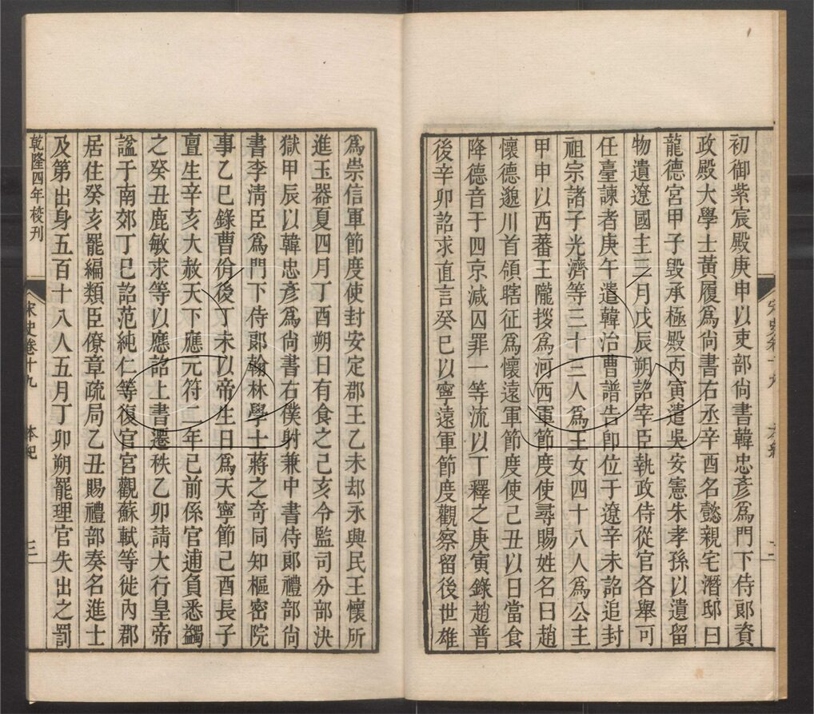 初御紫宸殿庚申以吏部尚書韓忠彥爲門下侍郞資
政殿大學士黃履爲尚書右丞辛酉名懿親宅潛邸曰
龍德宮甲子毀承極殿丙寅遣吳安憲朱孝孫以遺留
物遺遼國主三月戊辰朔詔宰臣執政侍從官各舉可
任臺諫者庚午遣韓治曹譜告卽位于遼辛未詔追封
祖宗諸子光濟等三十三人爲王女四十八人爲公主
甲申以西蕃王隴拶爲河西軍節度使尋賜姓名曰趙
懷德邈川首領瞎征爲懷遠軍節度使己丑以日當食
降德音于四京減囚罪一等流以下釋之庚寅錄趙普
後辛卯詔求直言癸巳以寧遠軍節度觀察留後世雄
爲崇信軍節度使封安定郡王乙未却永興民王懷所
進玉器夏四月丁酉朔日有食之己亥令監司分部決
獄甲辰以韓忠彥爲尚書右僕射兼中書侍郞禮部尚
書李淸臣爲門下侍郞翰林學士蔣之奇同知樞密院
事乙巳錄曹佾後丁未以帝生日爲天寧節己酉長子
亶生辛亥大赦天下應元符二年已前係官逋負悉蠲
之癸丑鹿敏求等以應詔上書遷秩乙卯請大行皇帝
諡于南郊丁巳詔范純仁等復官宮觀蘇軾等徙內郡
居住癸亥罷編類臣僚章疏局乙丑賜禮部奏名進士
及第出身五百十八人五月丁卯朔罷理官失出之罰
乾隆四年校刊
宋史卷十九
本紀
三